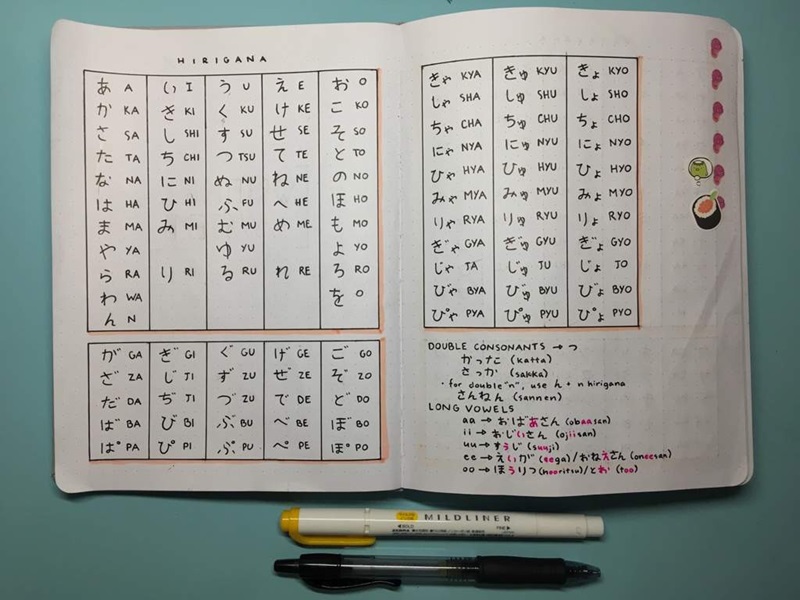 HIRIGANA
あ A い I う U え E お O
か KA き KI く KU け KE こ KO
さ SA し SHI す SU せ SE そ SO
た TA ち CHI つ TSU て TE と TO
な NA に NI ぬ NU ね NE の NO
は HA ひ HI ふ FU へ HE ほ HO
ま MA み MI む MU め ME も MO
や YA ゆ YU よ YO
ら RA り RI る RU れ RE ろ RO
わ WA を O
ん N
が GA ぎ GI ぐ GU げ GE ご GO
ざ ZA じ JI ず ZU ぜ ZE ぞ ZO
だ DA ぢ JI づ ZU で DE ど DO
ば BA び BI ぶ BU べ BE ぼ BO
ぱ PA ぴ PI ぷ PU ぺ PE ぽ PO
きゃ KYA きゅ KYU きょ KYO
しゃ SHA しゅ SHU しょ SHO
ちゃ CHA ちゅ CHU ちょ CHO
にゃ NYA にゅ NYU にょ NYO
ひゃ HYA ひゅ HYU ひょ HYO
みゃ MYA みゅ MYU みょ MYO
りゃ RYA りゅ RYU りょ RYO
ぎゃ GYA ぎゅ GYU ぎょ GYO
じゃ JA じゅ JU じょ JO
びゃ BYA びゅ BYU びょ BYO
ぴゃ PYA ぴゅ PYU ぴょ PYO
DOUBLE CONSONANTS → っ
かった (katta)
さっか (sakka)
· for double "n", use ん + n hirigana
さんねん (sannen)
LONG VOWELS
aa → おばあさん (obaasan)
ii → おじいさん (ojiisan)
uu → すうじ (suuji)
ee → えいが (eega) / おねえさん (oneesan)
oo → ほうりつ (hooritsu) / とお (too)
MILDLINER